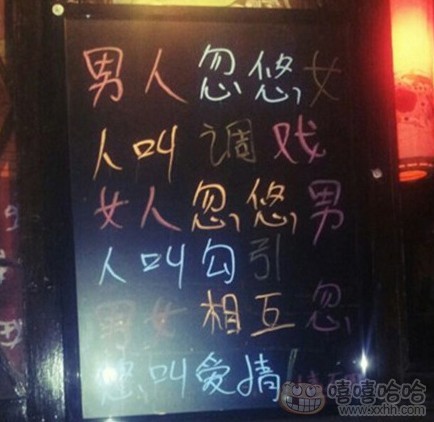 男人忽悠女
人叫调戏
女人忽悠男
人叫勾引
男女相互忽
悠叫爱情
嘻嘻哈哈
www.xxhh.com